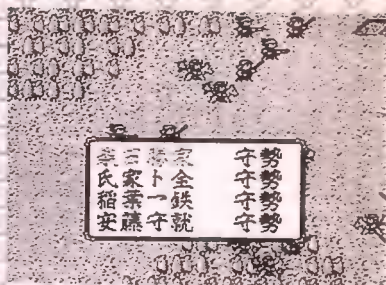 家 守勢
氏家卜全 守勢
稲葉一鉄 守勢
安藤守就 守勢